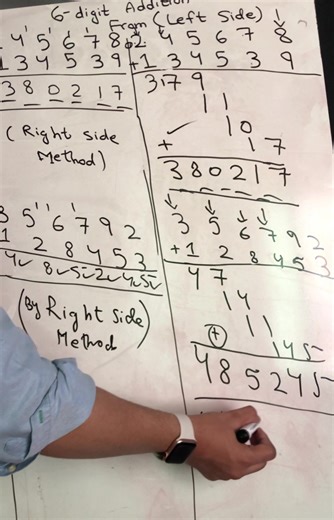 6-digit Addition
From (Left Side)
2 4 5 6 7 8
+1 3 4 5 3 9
3 8 0 2 1 7
(Right side
Method)
2 4 5 6 7 8
+1 3 4 5 3 9
3 17 9
1 1
1 0
+ 1 7
3 8 0 2 1 7
3 5 6 7 9 2
1 2 8 4 5 3
4 8 5 2 4 5
(By Right Side
Method)
3 5 6 7 9 2
+1 2 8 4 5 3
4 7
1 4
1 1
+ 1 4 5
4 8 5 2 4 5